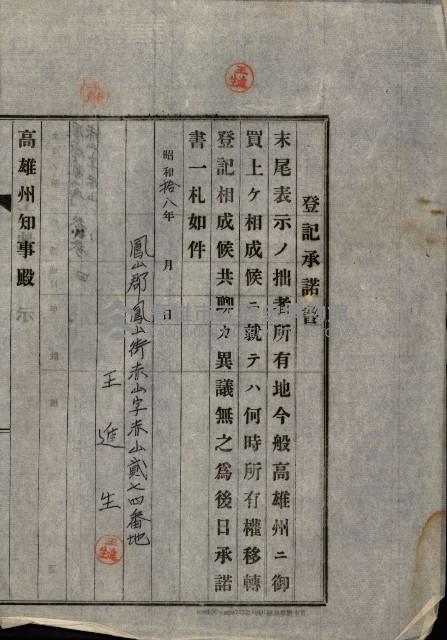 登記承諾書
末尾表示ノ拙者所有地今般高雄州ニ御
買上ケ相成候ニ就テハ何時所有權移轉
登記相成候共聊カ異議無之爲後日承諾
書一札如件
昭和拾八年 月 日
鳳山郡鳳山街赤山字赤山貳七四番地
王進生
高雄州知事殿